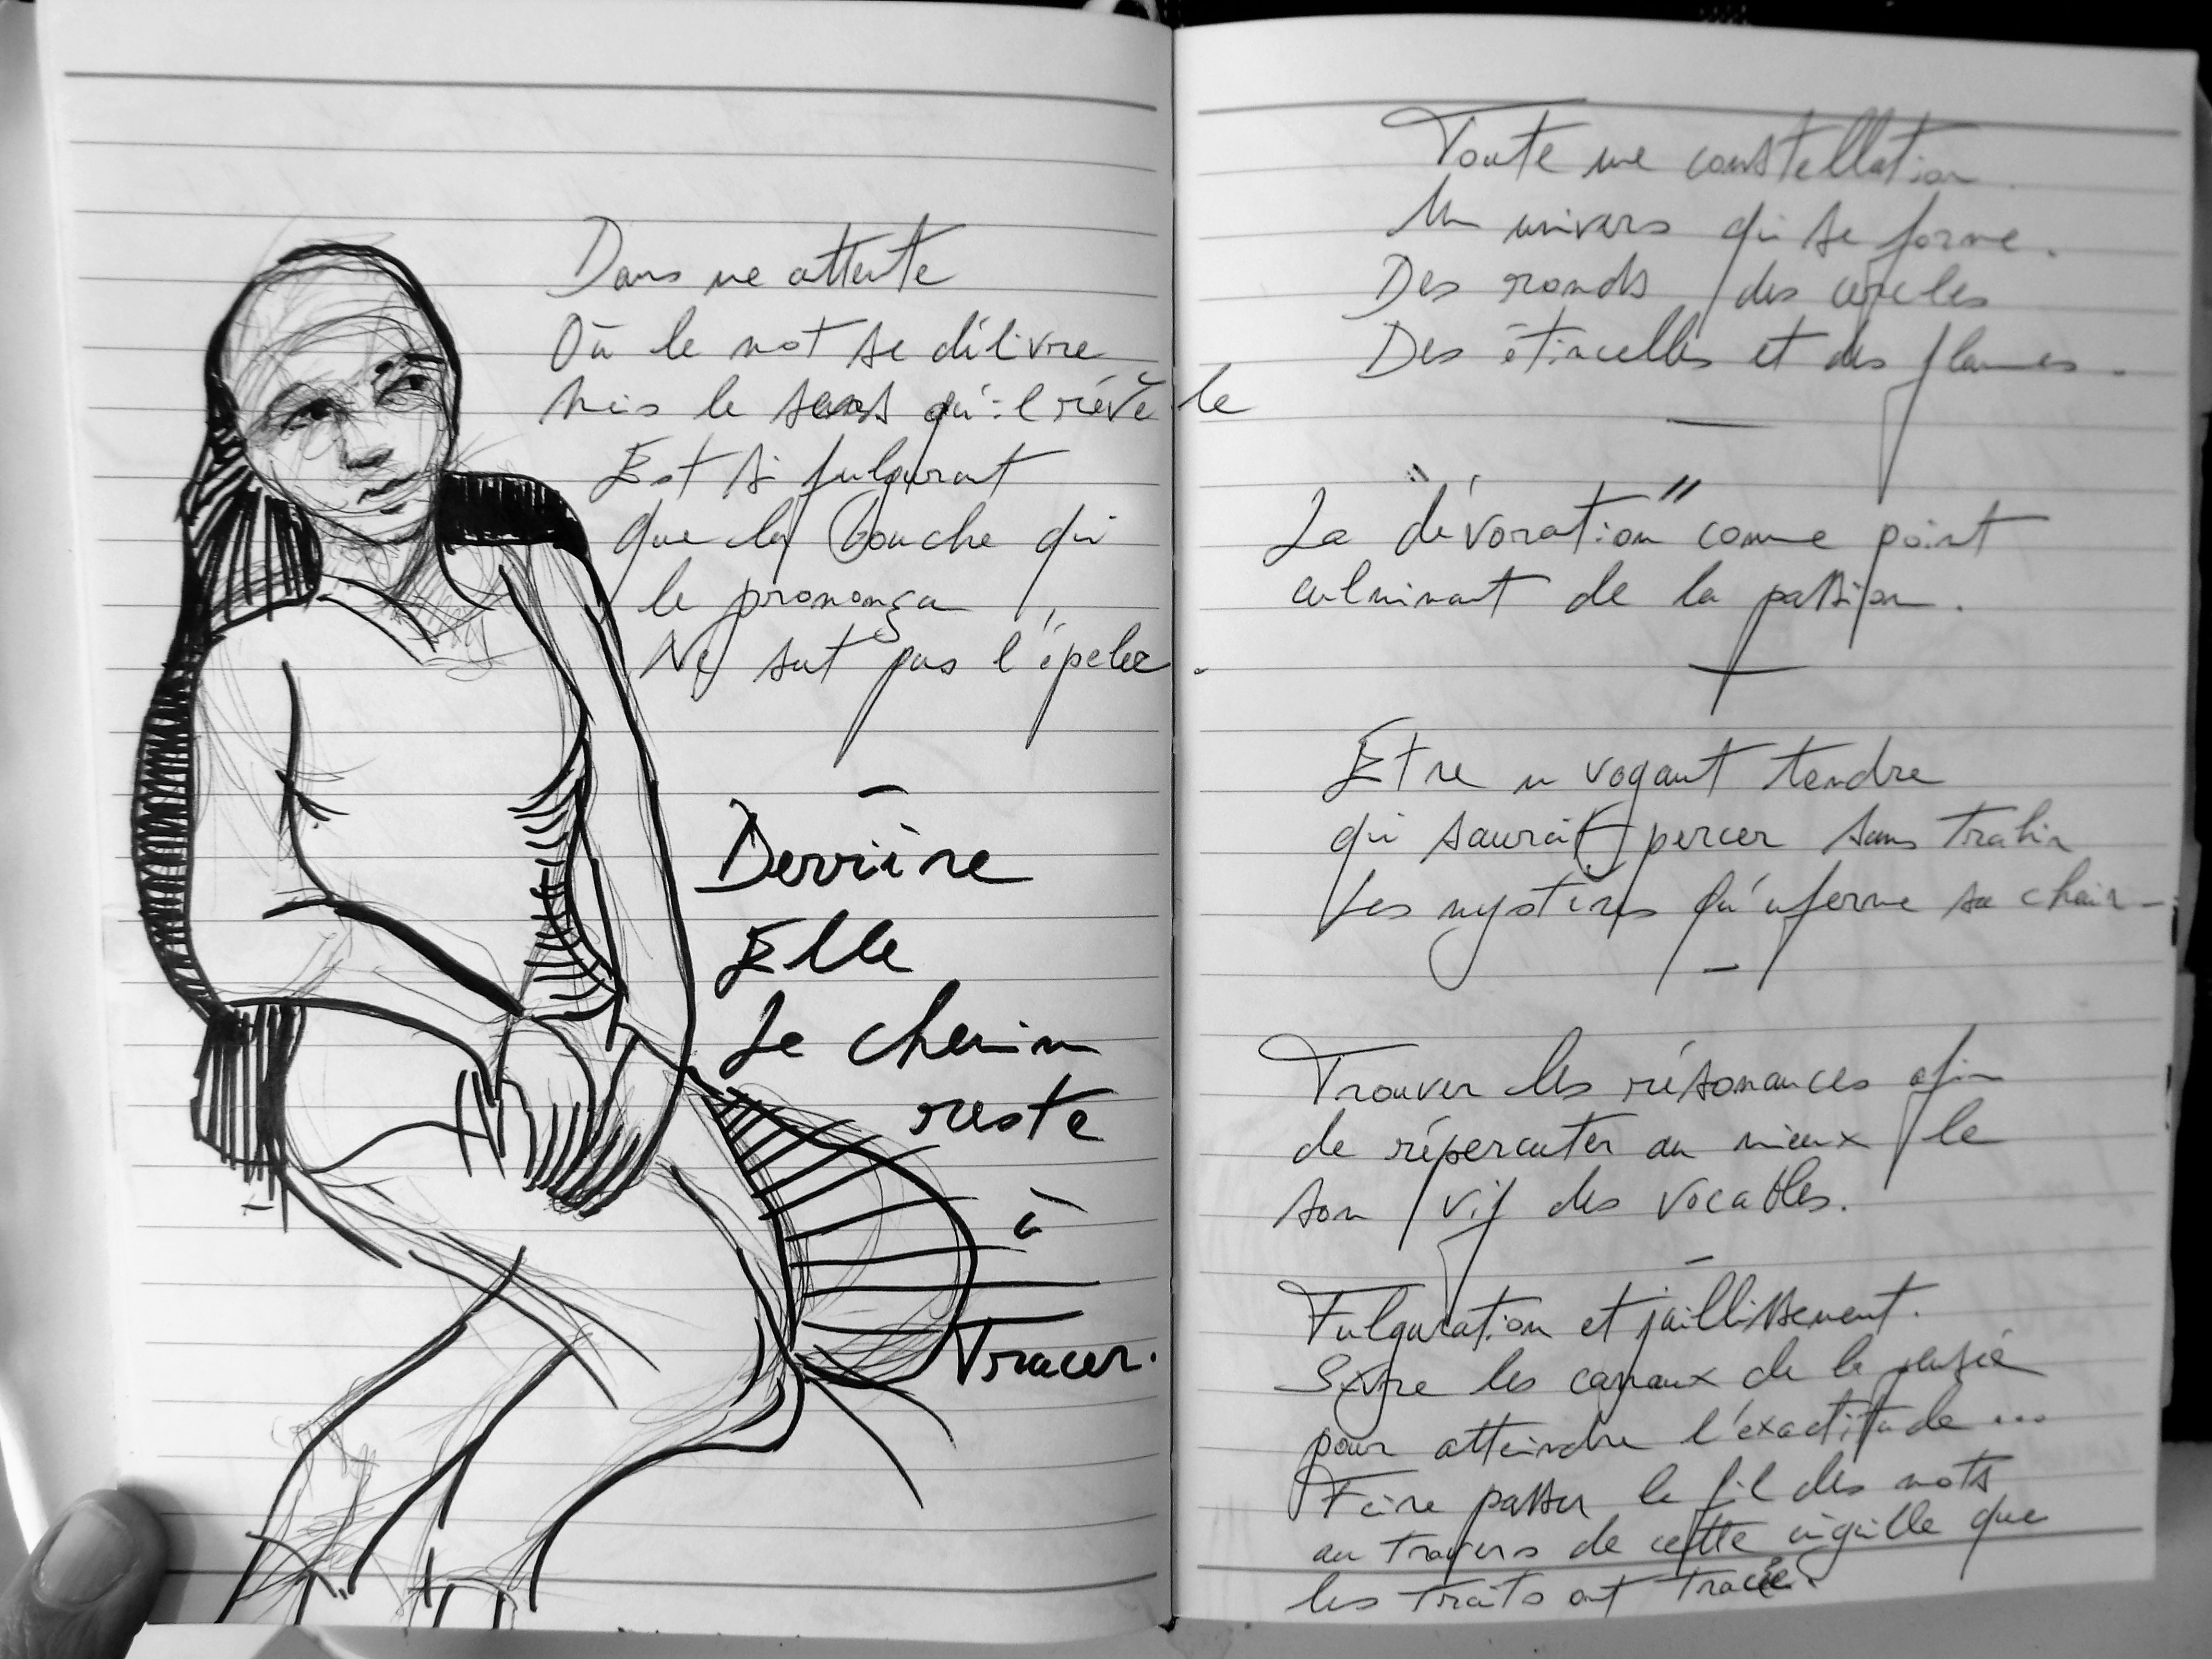 Dans une attente
Où le mot se délivre
Mais le sens qu'il révèle
Est si fulgurant
Que la bouche qui
le prononça
Ne sut pas l'épeler.
Derrière
Elle
Le chemin
reste
à
Tracer.
Toute une constellation.
Un univers qui se forme.
Des ronds, des cercles
Des étincelles et des flammes.
La "dévoration" comme point
culminant de la passion.
Etre un voyant tendre
qui saurait percer sans trahir
Les mystères qu'enferme sa chair
Trouver les résonances afin
de répercuter au mieux le
son vif des vocables.
Fulguration et jaillissement.
Suivre les canaux de la pensée
pour atteindre l'exactitude...
Faire passer le fil des mots
au travers de cette aiguille que
les traits ont tracée.